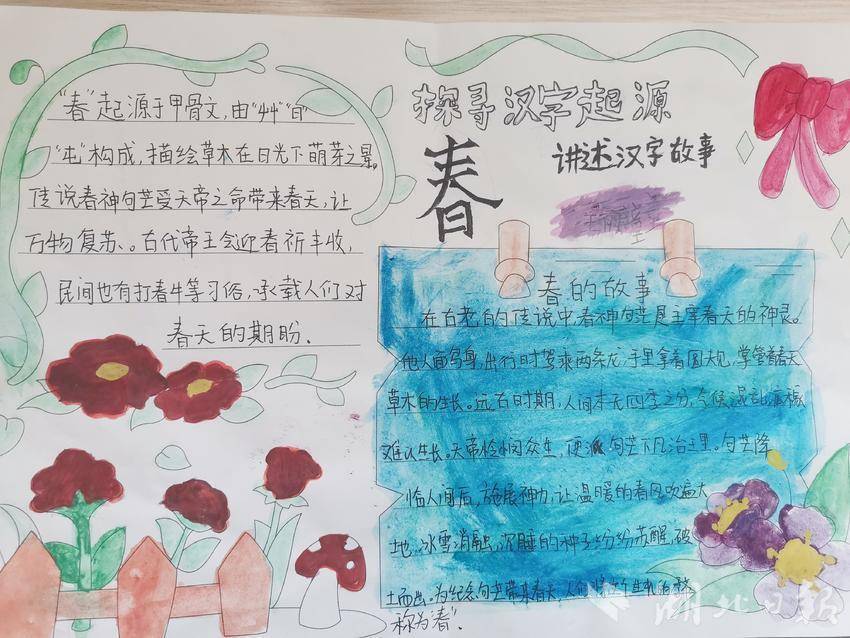 "春"起源于甲骨文,由"艸""日"
"屯"构成,描绘草木在日光下萌芽之景。
传说春神句芒受天帝之命带来春天,让
万物复苏、。古代帝王会迎春祈丰收,
民间也有打春牛等习俗,承载人们对
春天的期盼.
探寻汉字起源
讲述汉字故事
春
春的故事
在古老的传说中,春神句芒是主宰春天的神灵。
他人面鸟身,出行时驾乘两条龙,手里拿着圆大规,掌管着春天
草木的生长。远古时期,人间本无四季之分,气候混乱,
难以生长。天帝怜悯众生,便派句芒下凡治理。句芒降
临人间后,施展神力,让温暖的春风吹遍大
地,冰雪消融,沉睡的种子纷纷苏醒,破
土而出。为纪念句芒带来春天,人们
称为"春".
湖北日报